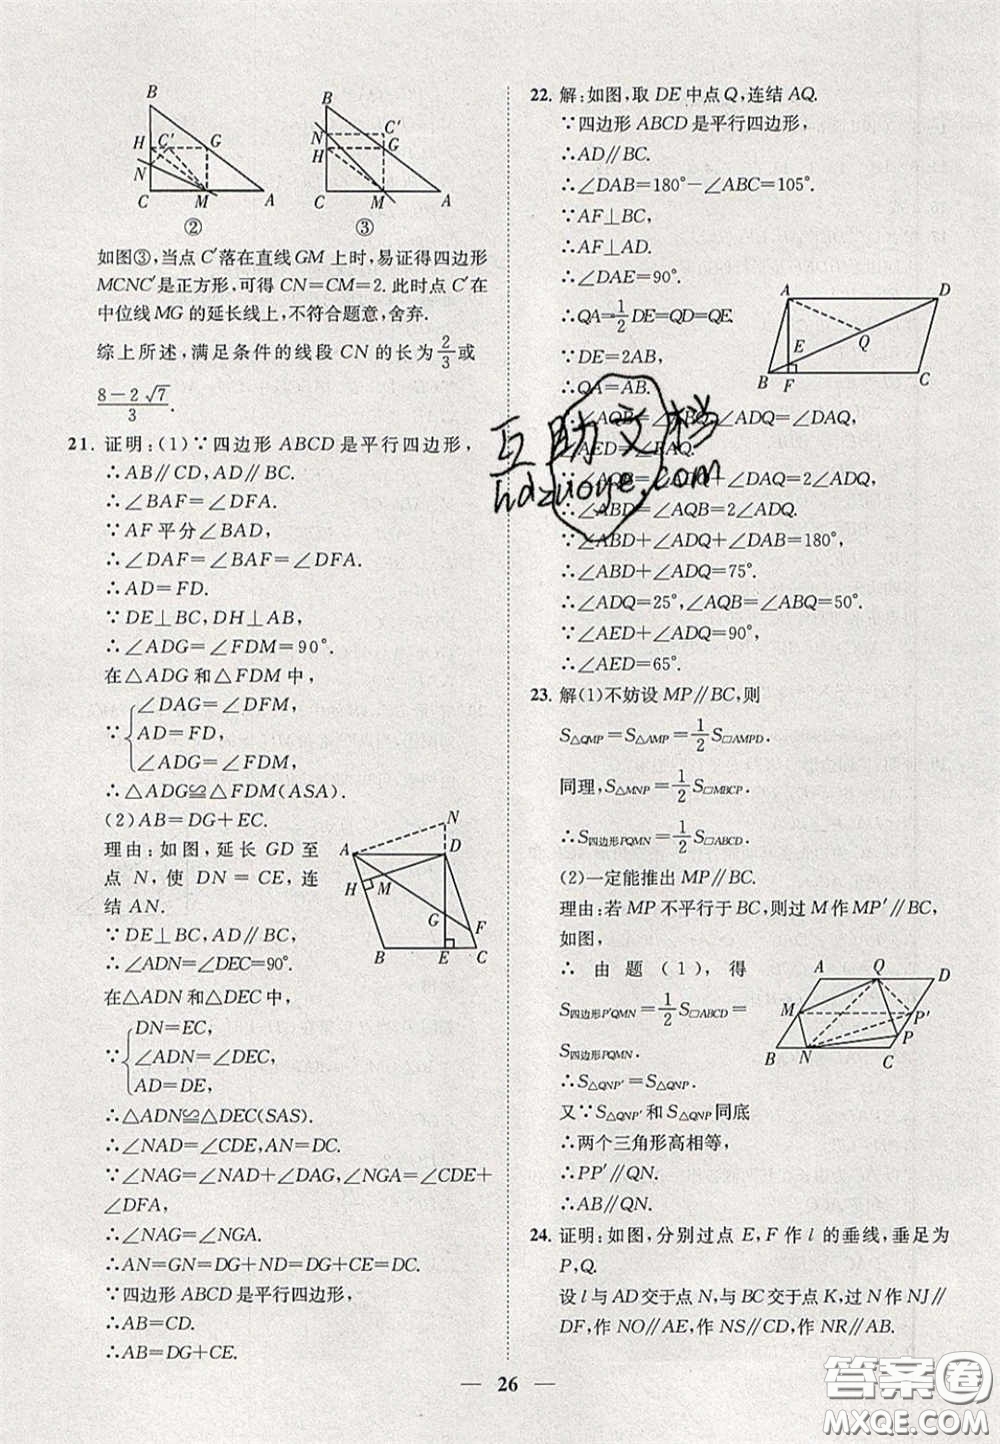 B
H
C′
G
N
C
M
A
②
B
N
C′
H
G
C
M
A
③
如图③,当点C′落在直线GM上时,易证得四边形
MCNC′是正方形,可得CN=CM=2.此时点C′在
中位线MG的延长线上,不符合题意,舍弃.
综上所述,满足条件的线段CN的长为2/3或
(8-2√7)/3.
21. 证明:(1)∵四边形ABCD是平行四边形,
∴AB∥CD,AD∥BC.
∴∠BAF=∠DFA.
∵AF平分∠BAD,
∴∠DAF=∠BAF=∠DFA.
∴AD=FD.
∵DE⊥BC,DH⊥AB,
∴∠ADG=∠FDM=90°.
在△ADG和△FDM中,
∵{∠DAG=∠DFM,
AD=FD,
∠ADG=∠FDM,
∴△ADG≌△FDM(ASA).
(2)AB=DG+EC.
理由:如图,延长GD至
点N,使DN=CE,连
结AN.
∵DE⊥BC,AD∥BC,
∴∠ADN=∠DEC=90°.
在△ADN和△DEC中,
∵{DN=EC,
∠ADN=∠DEC,
AD=DE,
∴△ADN≌△DEC(SAS).
∴∠NAD=∠CDE,AN=DC.
∵∠NAG=∠NAD+∠DAG,∠NGA=∠CDE+
∠DFA,
∴∠NAG=∠NGA.
∴AN=GN=DG+ND=DG+EC=DC.
∵四边形ABCD是平行四边形,
∴AB=CD.
∴AB=DG+CE.
N
A
D
H
M
G
F
B
E
C
22. 解:如图,取DE中点Q,连结AQ.
∵四边形ABCD是平行四边形,
∴AD∥BC.
∴∠DAB=180°-∠ABC=105°.
∵AF⊥BC,
∴AF⊥AD.
∴∠DAE=90°.
∴QA=1/2DE=QD=QE.
∵DE=2AB,
∴QA=AB.
∴∠AQB=∠ABD,∠ADQ=∠DAQ,
∠AED=∠EAQ.
∴∠AQB=∠ADQ+∠DAQ=2∠ADQ,
∴∠ABD=∠AQB=2∠ADQ.
∵∠ABD+∠ADQ+∠DAB=180°,
∴∠ABD+∠ADQ=75°.
∴∠ADQ=25°,∠AQB=∠ABQ=50°.
∵∠AED+∠ADQ=90°,
∴∠AED=65°.
A
D
E
Q
B
F
C
23. 解(1)不妨设MP∥BC,则
S△QMP=S△AMP=1/2S□AMPD.
同理,S△MNP=1/2S□MBCP.
∴S四边形PQMN=1/2S□ABCD.
(2)一定能推出MP∥BC.
理由:若MP不平行于BC,则过M作MP′∥BC,
如图,
∴由题(1),得
S四边形P′QMN=1/2S□ABCD=
S四边形PQMN.
∴S△QNP′=S△QNP.
又∵S△QNP′和S△QNP同底
∴两个三角形高相等,
∴PP′∥QN.
∴AB∥QN.
A
Q
D
M
P′
P
B
N
C
24. 证明:如图,分别过点E,F作l的垂线,垂足为
P,Q.
设l与AD交于点N,与BC交于点K,过N作NJ∥
DF,作NO∥AE,作NS∥CD,作NR∥AB.
互助文档
hdzuoye.com
— 26 —
答案圈
MXQE.COM